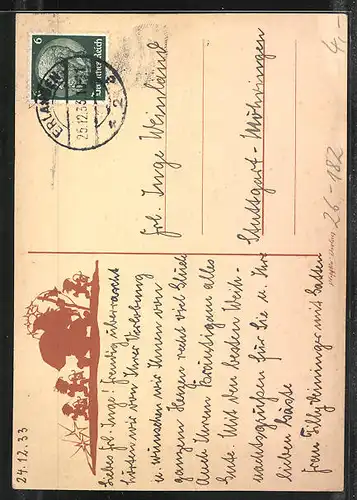 24.12.33
Liebes Frl. Inge! Freudig überrascht
hörten wir von Ihrer Verlobung
u. wünschen wir Ihnen von
ganzem Herzen recht viel Glück
Auch Ihrem Bräutigam alles
Gute. Mit den besten Weih-
nachtsgrüßen für Sie u. Ihre
lieben Gäste
Frau Tilly mit Gatten
6
Deutsches Reich
ERLANGEN
25.12.33
2
Frl. Inge
Stuttgart-Möhringen
26-182